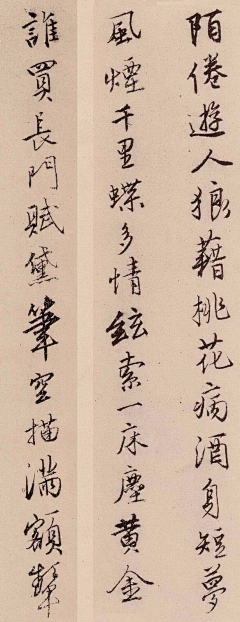 陌倦遊人狼藉桃花病酒身短夢
風煙千里蝶多情絃索一床塵黃金
誰買長門賦黛筆空描滿額顰